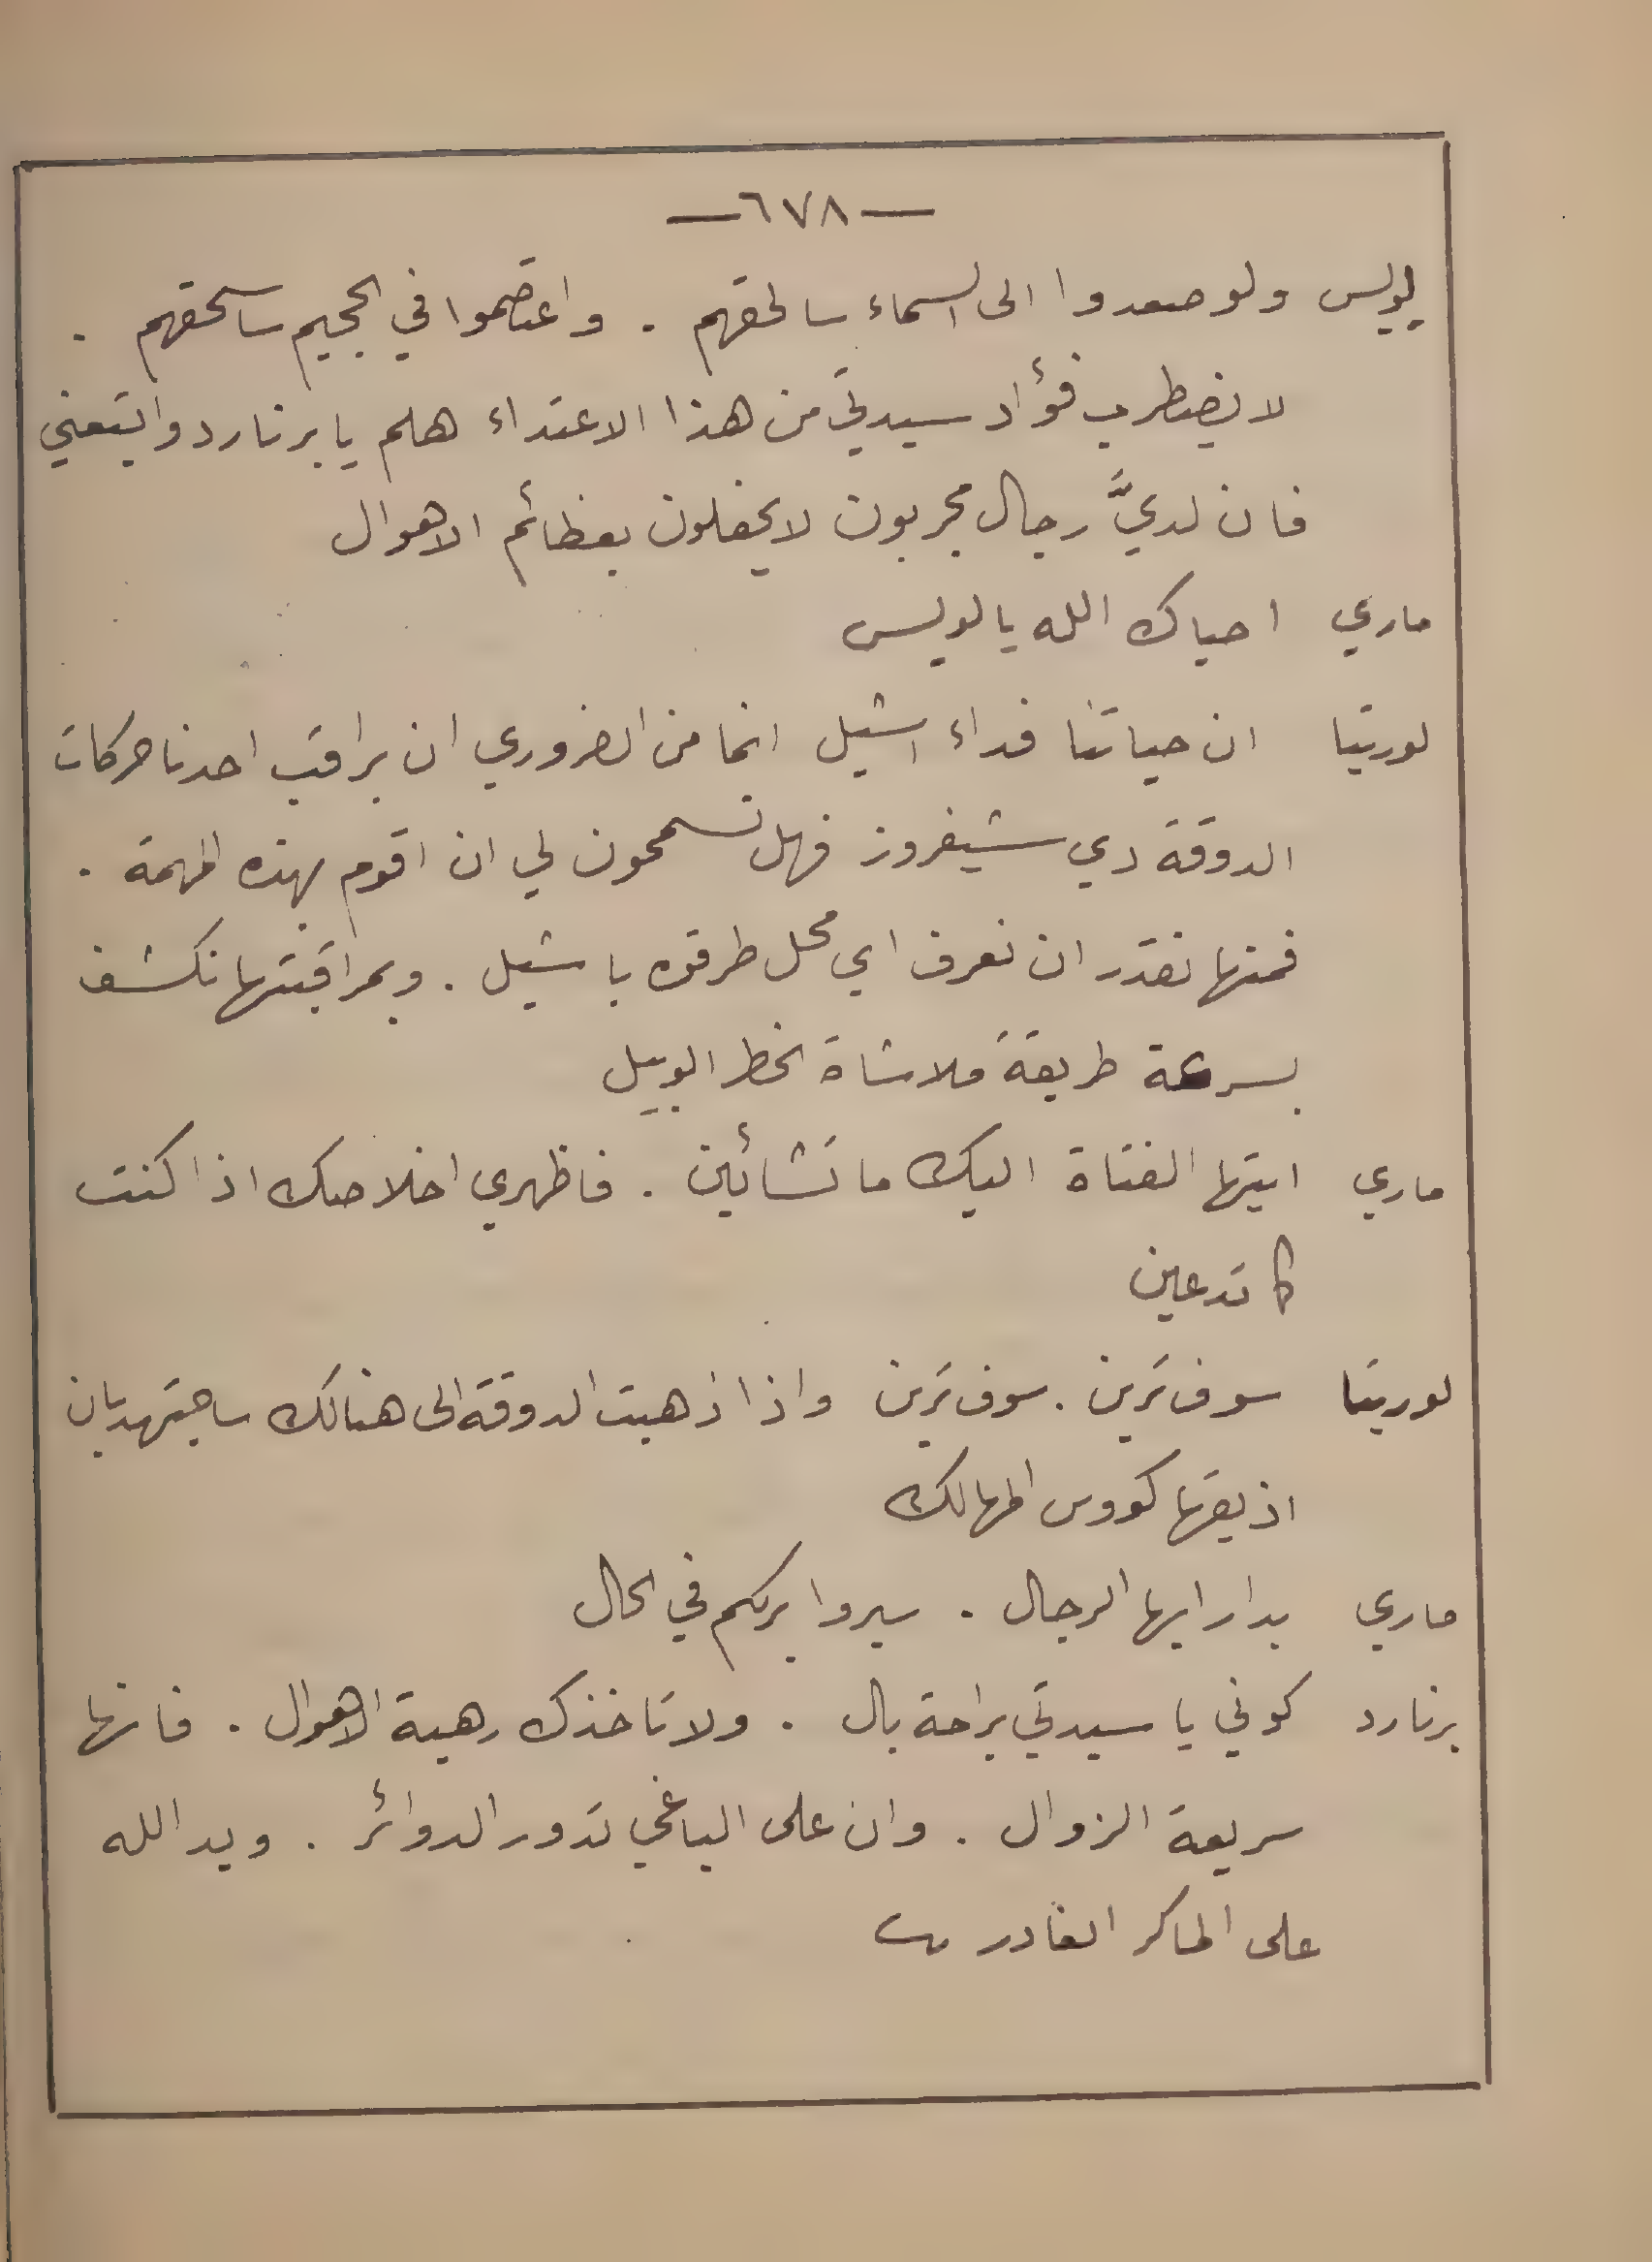 —٦٧٨—
لويس ولو صعدوا الى السماء سالحقهم . واعتصموا في الجحيم ساسحقهم .
لا يضطرب فؤاد سيدتي من هذا الاعتداء هلم يا برنارد واتبعني
فان لديَّ رجال مجربون لا يحفلون بعظائم الاهوال
ماري احياك الله يا لويس
لوريتا ان حياتنا فداء اشيل انما من الضروري ان يراقب احدنا حركات
الدوقة دي شيفروز فهل تسمحون لي ان اقوم بهذه المهمة .
فمنها نقدر ان نعرف اي محل طرقوه باشيل . وبمراقبتها نكشف
بسرعة طريقة ملاشاة الخطر الوبيل
ماري ايتها الفتاة اليك ما تشائين . فاظهري اخلاصك اذا كنت
كما تدعين
لوريتا سوف ترين . سوف ترين واذا ذهبت الدوقة الى هنالك ساجتهد بان
اذيقها كووس المهالك
ماري بدار ايها الرجال . سيروا بربكم في الحال
برنارد كوني يا سيدتي براحة بال . ولا تاخذك رهبة الاهوال . فانها
سريعة الزوال . وان على الباغي تدور الدوائر . ويد الله
على الماكر الغادر